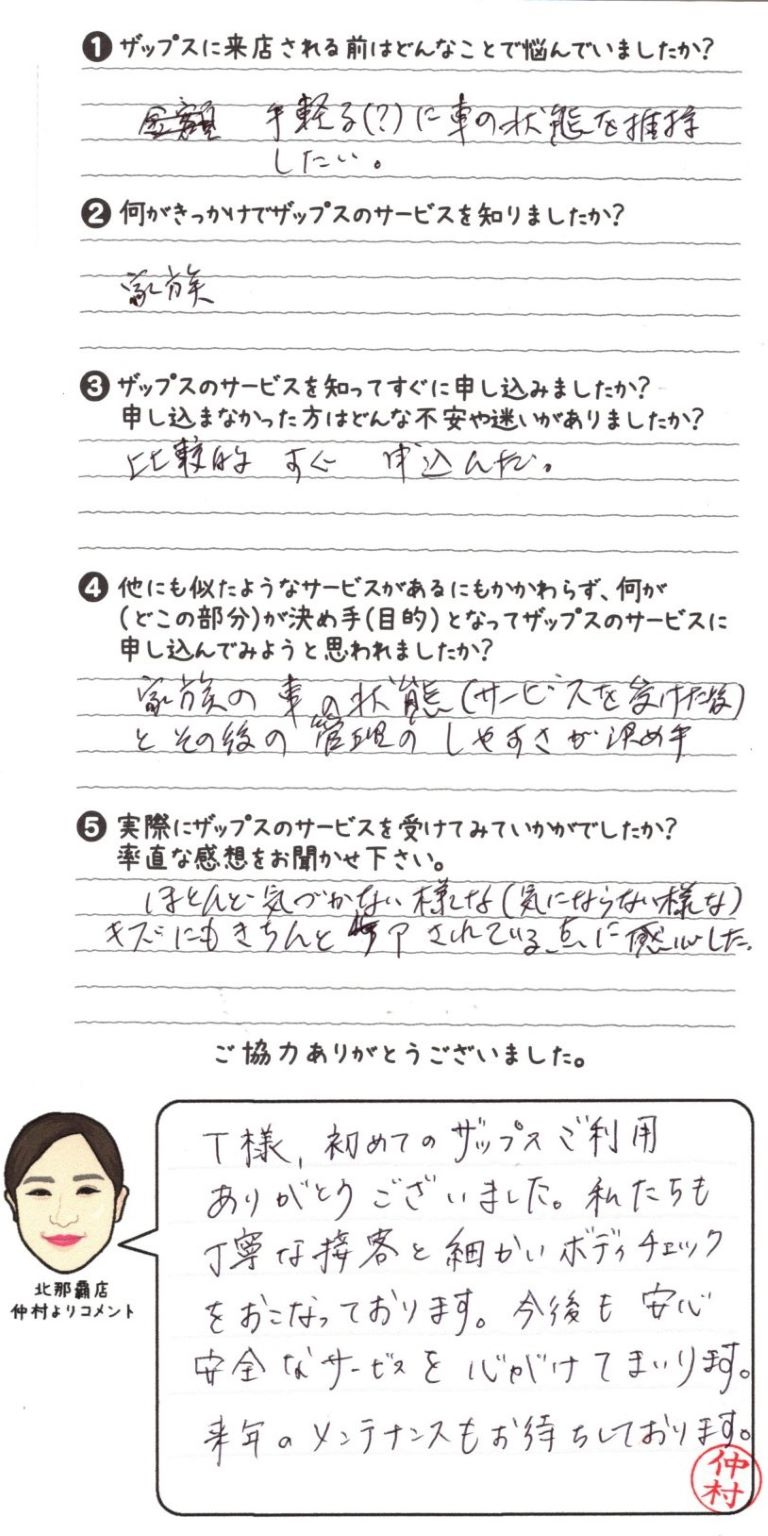 ❶ ザップスに来店される前はどんなことで悩んでいましたか?
手軽る(?)に車の状態を維持
したい。
❷ 何がきっかけでザップスのサービスを知りましたか?
家族
❸ ザップスのサービスを知ってすぐに申し込みましたか?
申し込まなかった方はどんな不安や迷いがありましたか?
比較的 すぐ 申込んだ。
❹ 他にも似たようなサービスがあるにもかかわらず、何が
(どこの部分)が決め手(目的)となってザップスのサービスに
申し込んでみようと思われましたか?
家族の車の状態(サービスを受けた後)
とその後の管理のしやすさが決め手
❺ 実際にザップスのサービスを受けてみていかがでしたか?
率直な感想をお聞かせ下さい。
ほとんど気づかない様な(気にならない様な)
キズにもきちんとケアされている点に感心した。
ご協力ありがとうございました。
T様、初めてのザップスご利用
ありがとうございました。私たちも
丁寧な接客と細かいボディチェック
をおこなっております。今後も安心
安全なサービスを心がけてまいります。
来年のメンテナンスもお待ちしております。
北那覇店
仲村よりコメント
仲村